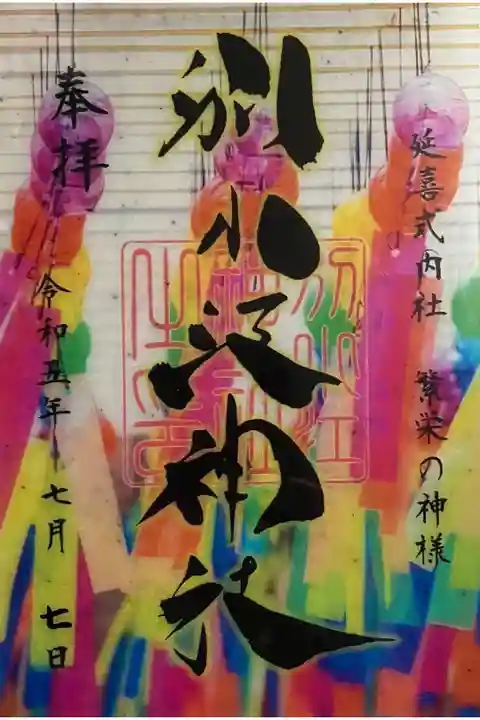 延喜式内社 繁栄の神様
別小江神社
別小江
神社
之印
奉拝
令和五年 七月 七日